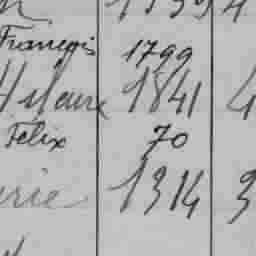 François 1799
Hilaire 1841 4
Félix 70
rie 1314 3